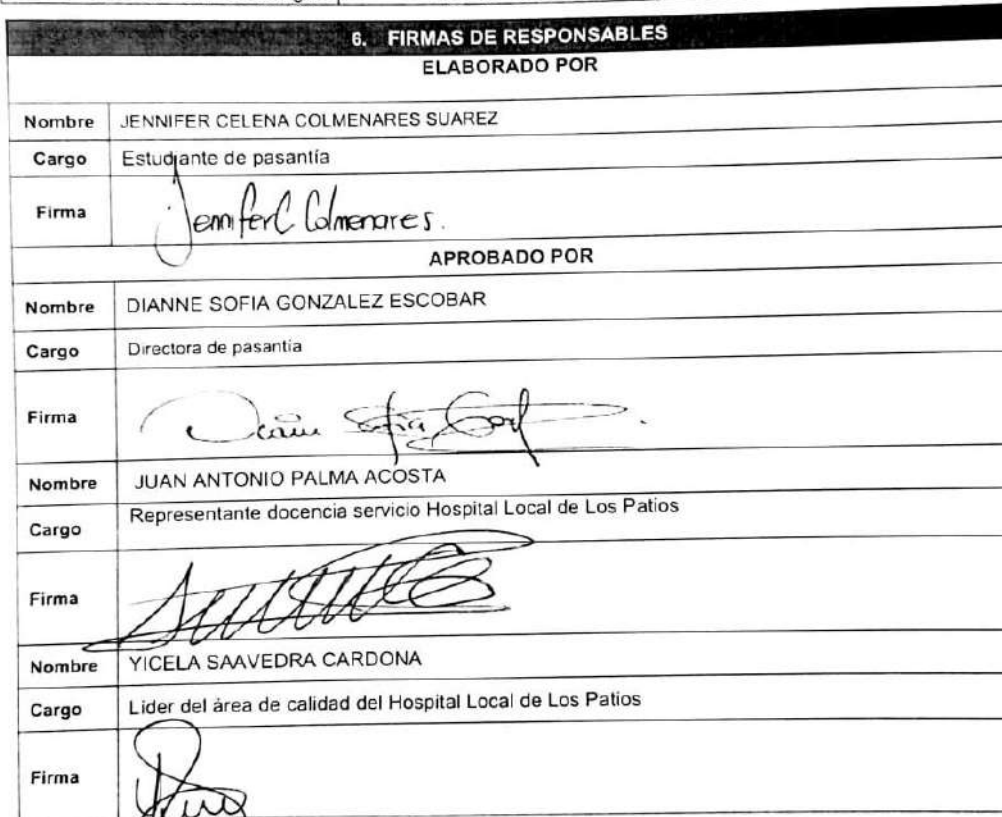 6. FIRMAS DE RESPONSABLES
ELABORADO POR
Nombre JENNIFER CELENA COLMENARES SUAREZ
Cargo Estudiante de pasantía
Firma Jennifer C Colmenares.
APROBADO POR
Nombre DIANNE SOFIA GONZALEZ ESCOBAR
Cargo Directora de pasantía
Firma
Nombre JUAN ANTONIO PALMA ACOSTA
Cargo Representante docencia servicio Hospital Local de Los Patios
Firma
Nombre YICELA SAAVEDRA CARDONA
Cargo Lider del área de calidad del Hospital Local de Los Patios
Firma